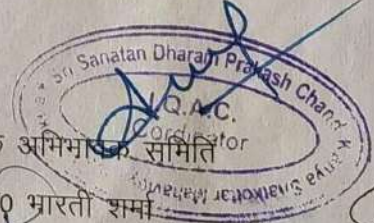 Sri Sanatan Dharam Prakash Chand Kanya Snatkottar Mahavidy
I.Q.A.C.
Cordinator
अभिभावक समिति
भारती शर्मा